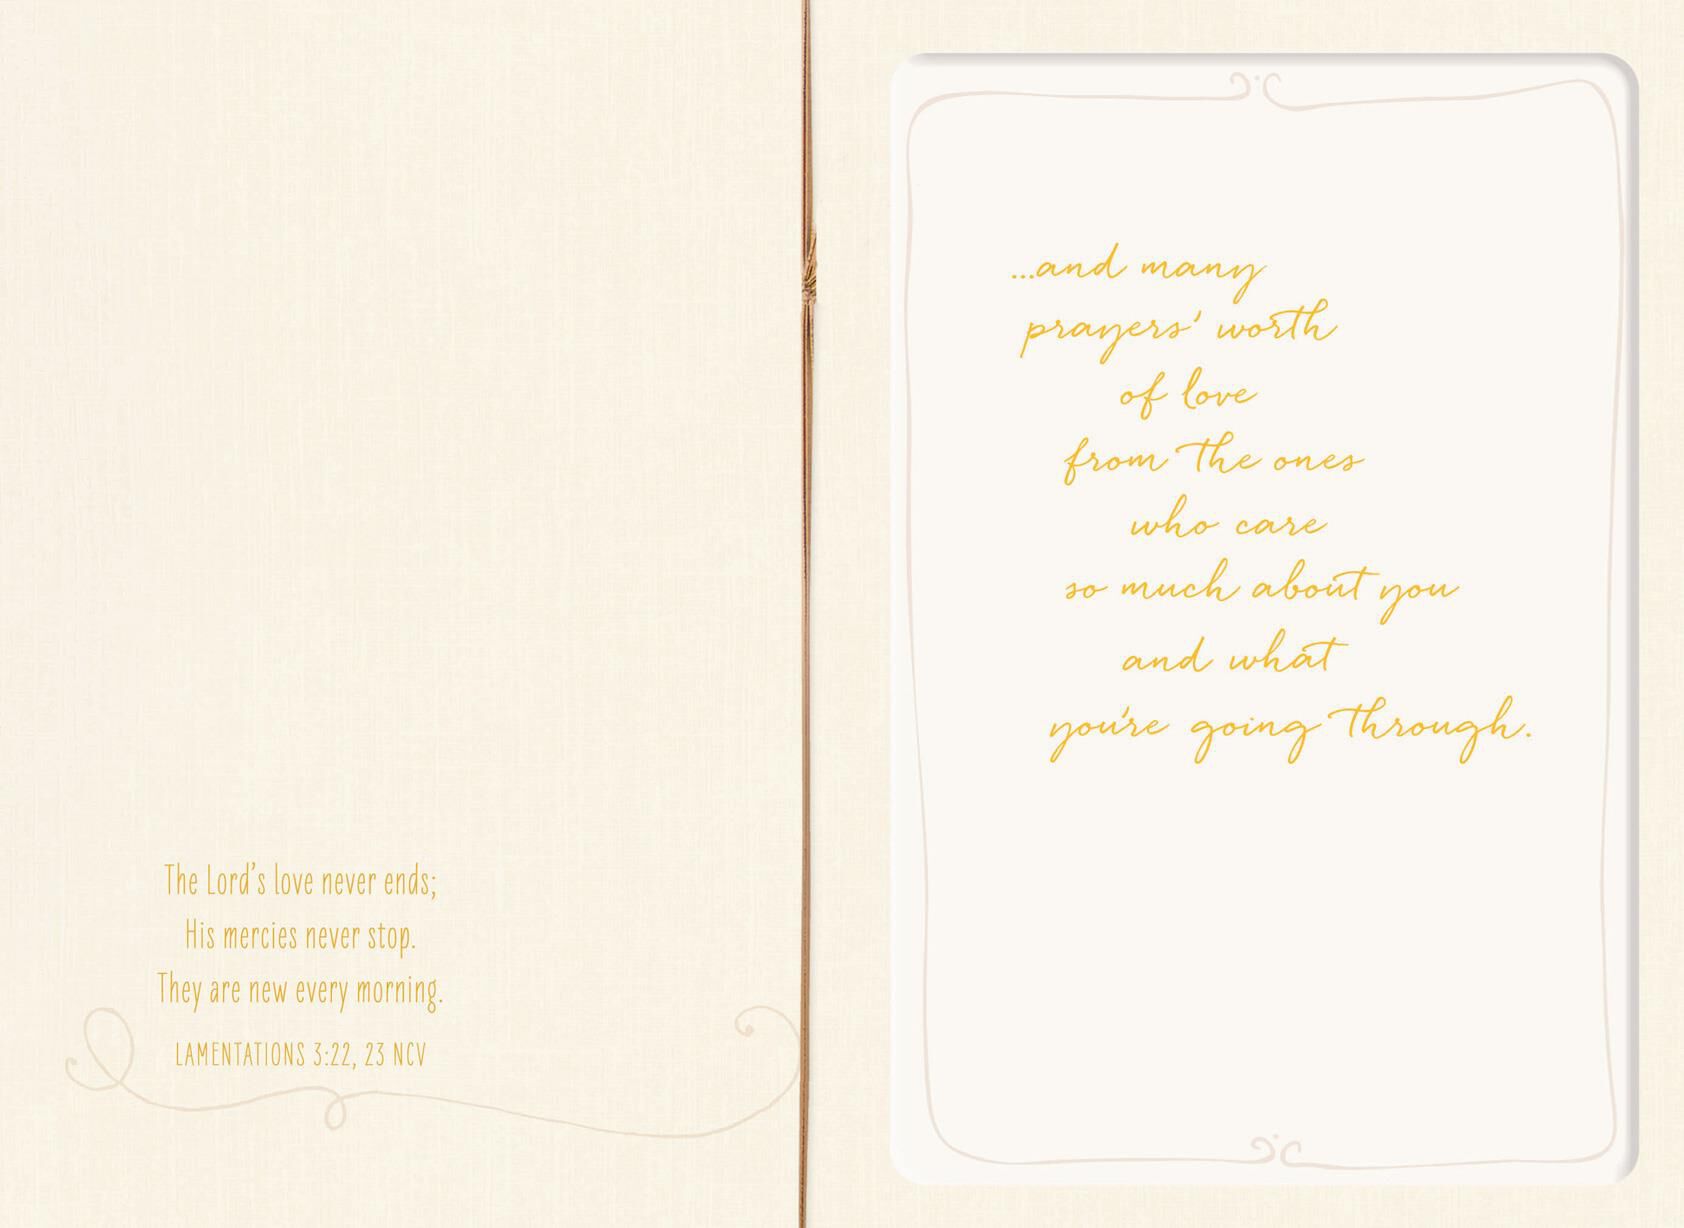 The Lord's love never ends;
His mercies never stop.
They are new every morning.
LAMENTATIONS 3:22, 23 NCV
...and many
prayers' worth
of love
from the ones
who care
so much about you
and what
you're going through.